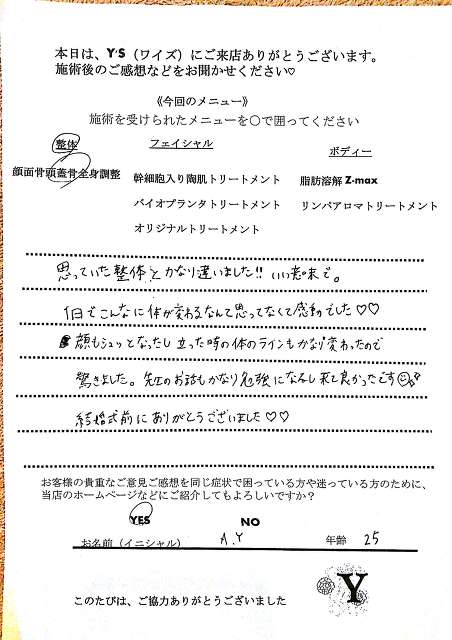 本日は、Y'S（ワイズ）にご来店ありがとうございます。
施術後のご感想などをお聞かせください♡
《今回のメニュー》
施術を受けられたメニューを〇で囲ってください
整体
フェイシャル
ボディー
顔面骨頭蓋骨全身調整
幹細胞入り陶肌トリートメント
脂肪溶解 Z-max
バイオプランタトリートメント
リンパアロマトリートメント
オリジナルトリートメント
思っていた整体とかなり違いました!! いい意味で。
1日でこんなに体が変わるなんて思ってなくて感動でした♡♡
顔もシュッとなったし立った時の体のラインもかなり変わったので
驚きました。先生のお話もかなり勉強になるし来て良かったです
結婚式前にありがとうございました♡♡
お客様の貴重なご意見ご感想を同じ症状で困っている方や迷っている方のために、
当店のホームページなどにご紹介してもよろしいですか？
YES NO
お名前（イニシャル） A.Y 年齢 25
Y
このたびは、ご協力ありがとうございました